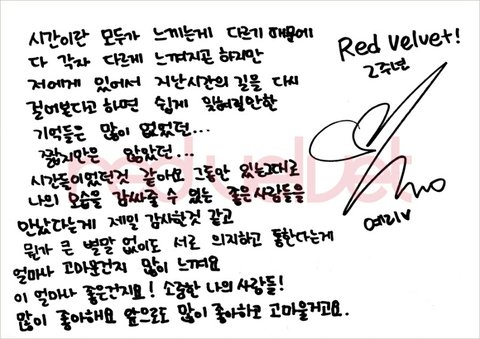 시간이란 모두가 느끼는게 다르기 때문에
다 각자 다르게 느껴지곤 하지만
저에게 있어서 지난시간의 길을 다시
걸어본다고 하면 쉽게 잊혀질만한
기억들은 많이 없었던...
짧지만은 않았던...
시간들이었던것 같아요 그동안 있는그대로
나의 모습을 감싸줄 수 있는 좋은사람들을
만났다는게 제일 감사한것 같고
뭔가 큰 별말 없이도 서로 의지하고 통한다는게
얼마나 고마운건지 많이 느껴요
이 얼마나 좋은건지요! 소중한 나의 사람들!
많이 좋아해요 앞으로도 많이 좋아하고 고마울거고요.
Red Velvet!
2주년
예리
red velvet